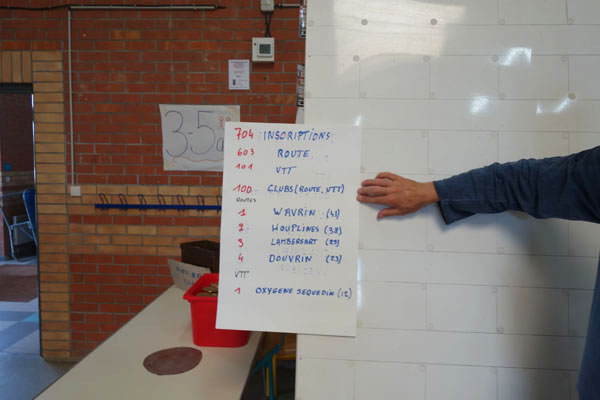 3-5
704 INSCRIPTIONS
603 ROUTE
101 VTT
100 CLUBS (ROUTE, VTT)
ROUTES
1 WAVRIN (41)
2 HOUPLINES (38)
3 LAMBERSART (29)
4 DOUVRIN (23)
VTT
1 OXYGENE SEQUEDIN (12)